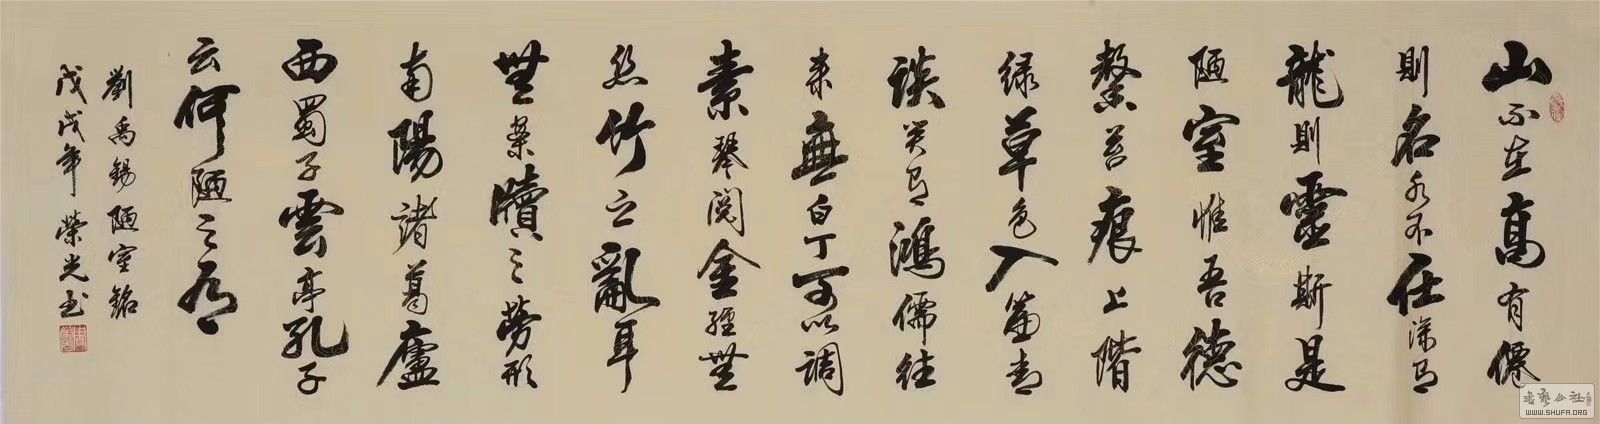 山不在高有僊
則名水不在深有
龍則靈斯是
陋室惟吾德
馨苔痕上階
緑草色入簾青
談笑有鴻儒往
来無白丁可以調
素琴閲金經無
絲竹之亂耳
無案牘之勞形
南陽諸葛廬
西蜀子雲亭孔子
云何陋之有
劉禹錫陋室銘
戊戌年榮光书
书艺公社
WWW.SHUFA.ORG